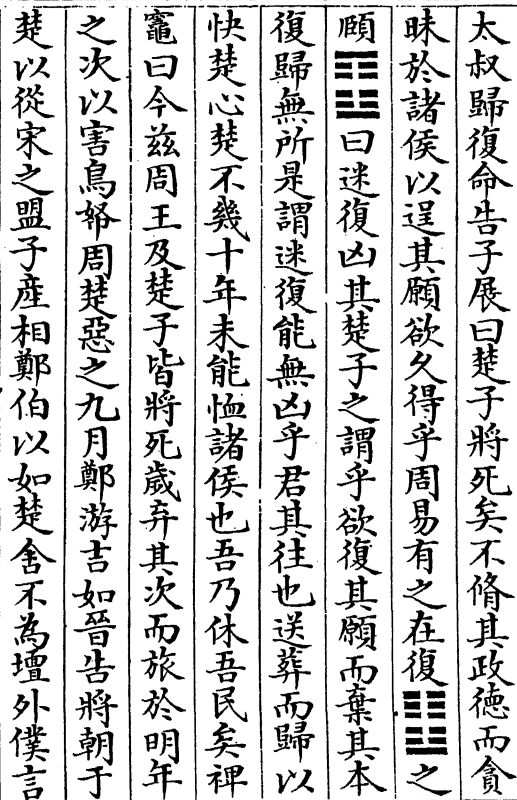 太叔歸復命告子展曰楚子將死矣不脩其政德而貪
昧於諸侯以逞其願欲久得乎周易有之在復䷗之
頤䷚曰迷復凶其楚子之謂乎欲復其願而棄其本
復歸無所是謂迷復能無凶乎君其往也送葬而歸以
快楚心楚不幾十年未能恤諸侯也吾乃休吾民矣裨
竈曰今兹周王及楚子皆將死歲弃其次而旅於明年
之次以害鳥帑周楚惡之九月鄭游吉如晉告將朝于
楚以從宋之盟子産相鄭伯以如楚舍不為壇外僕言